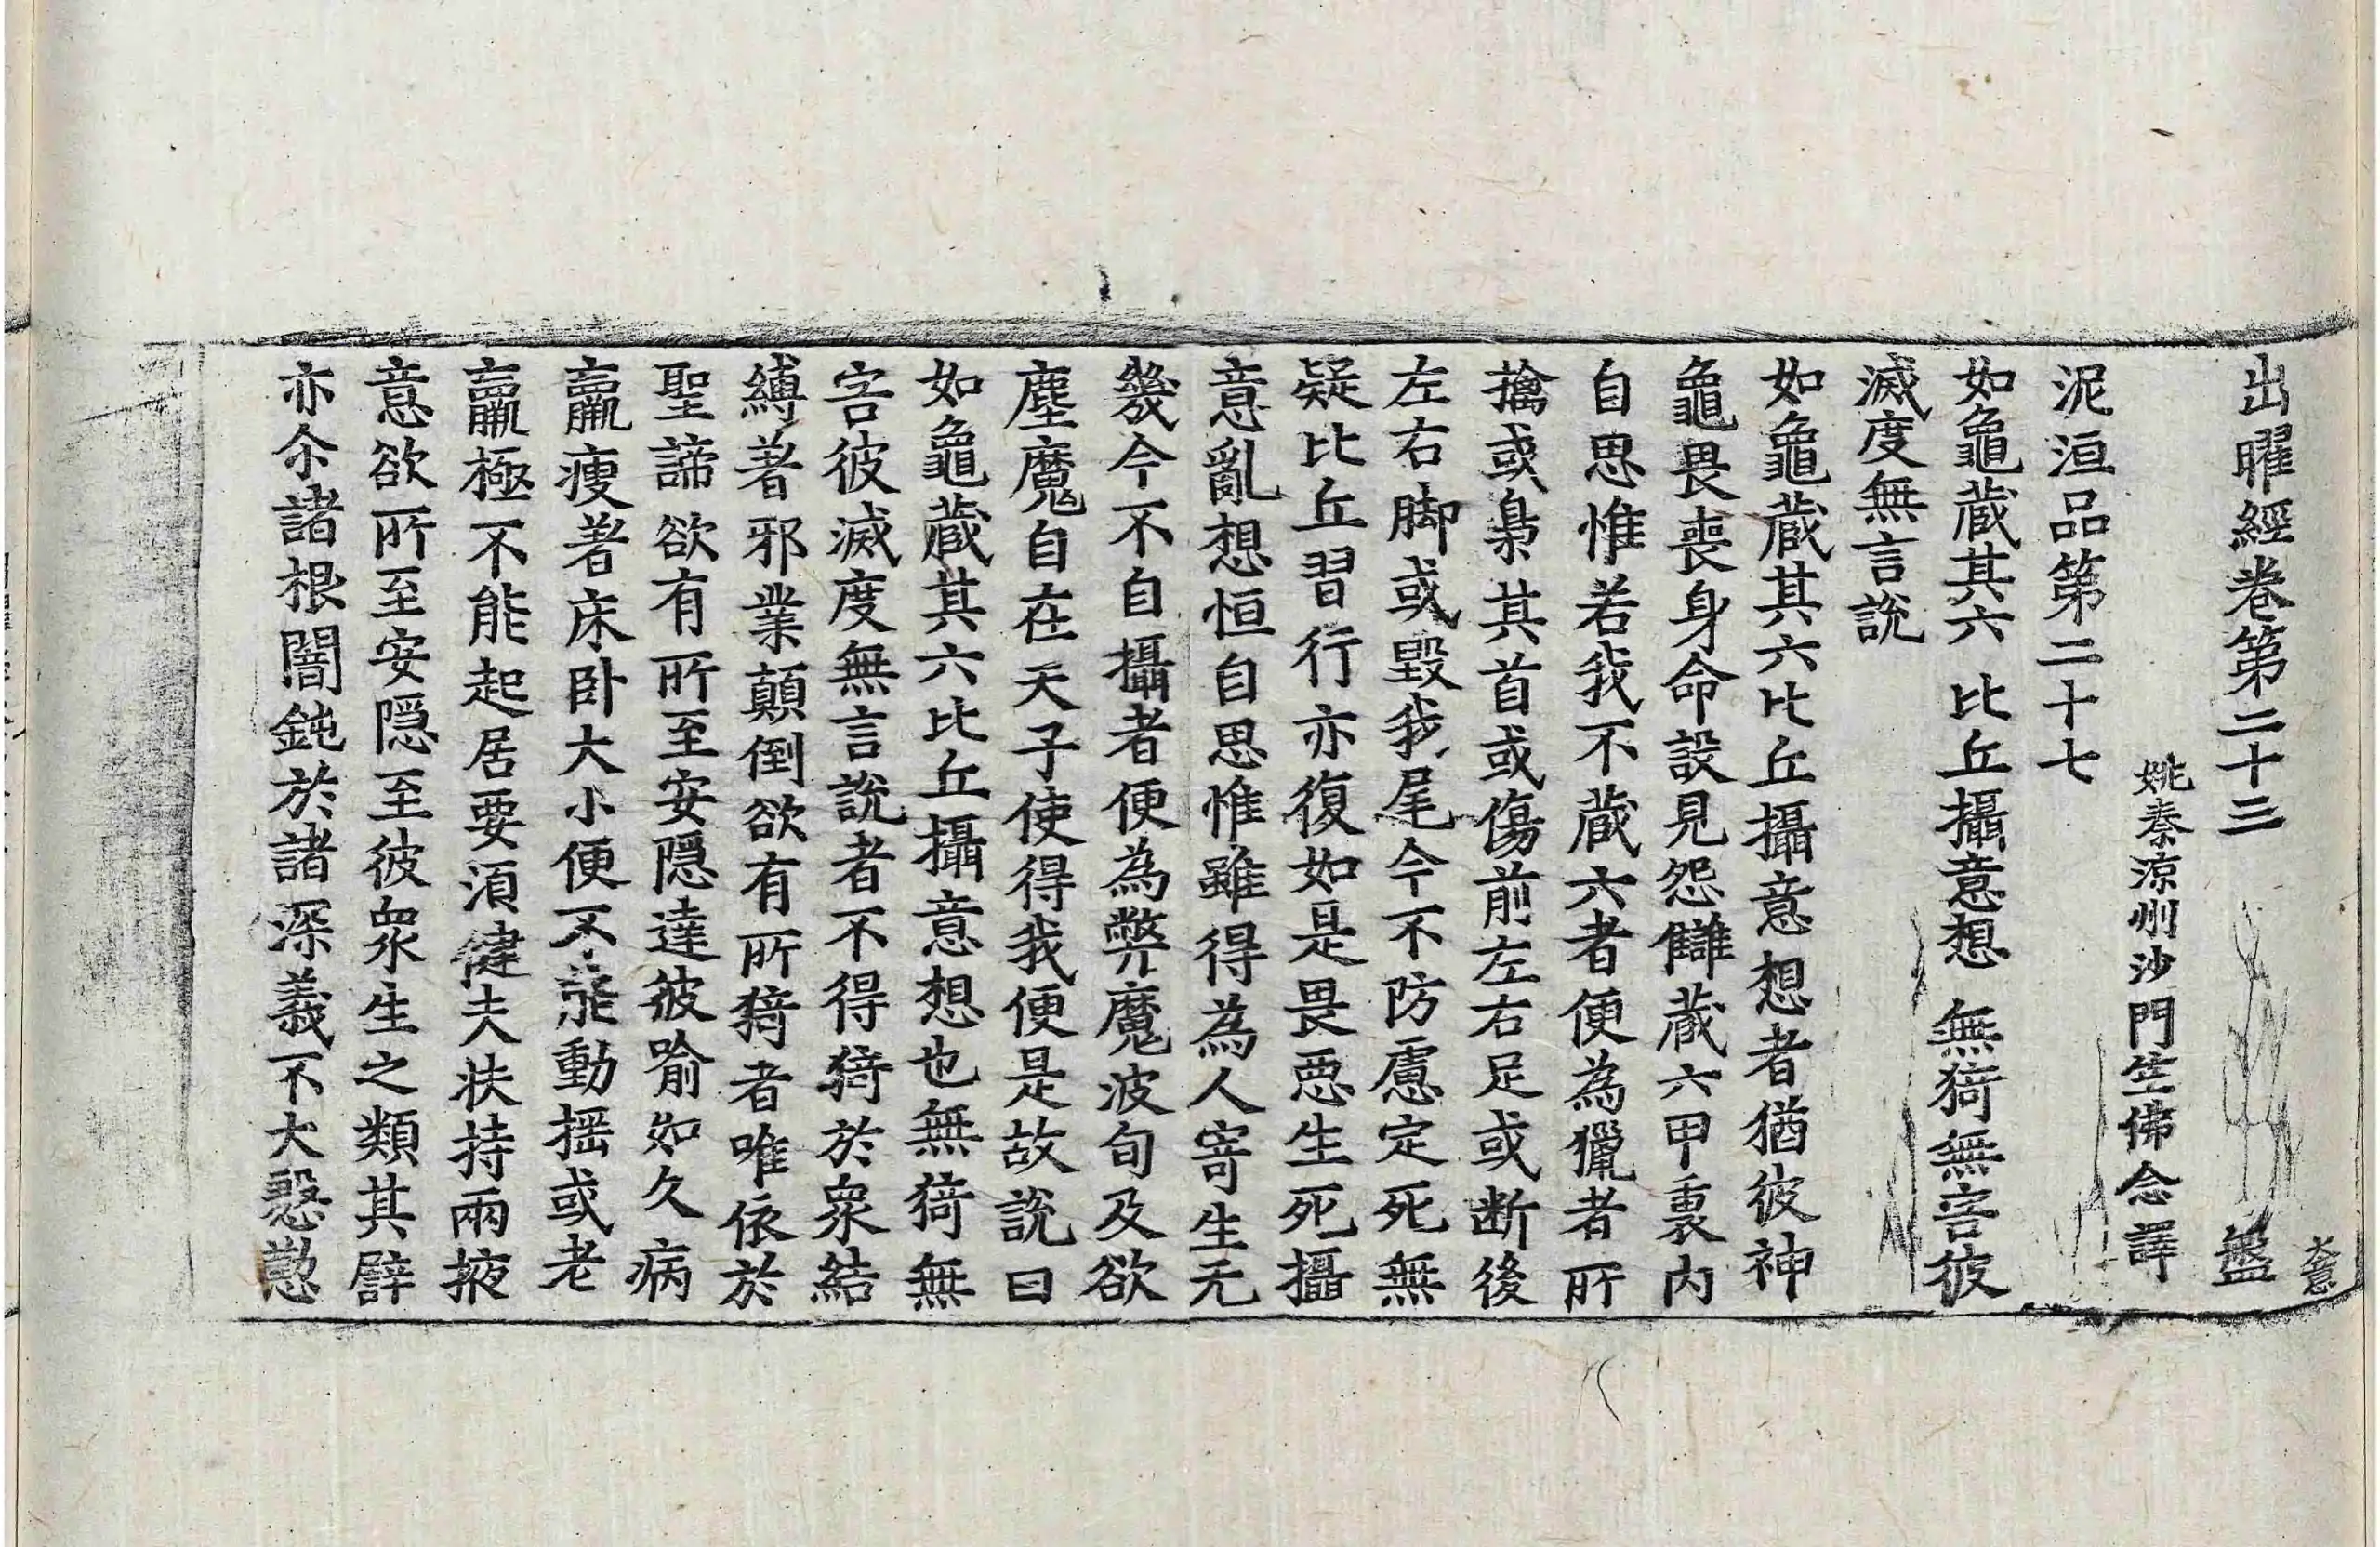 出曜經卷第二十三 盤
姚秦涼州沙門竺佛念譯
泥洹品第二十七
如龜藏其六 比丘攝意想 無猗無害彼
滅度無言說
如龜藏其六比丘攝意想者猶彼神
龜畏喪身命設見怨讎藏六甲裏內
自思惟若我不藏六者便為獵者所
擒或梟其首或傷前左右足或断後
左右脚或毀我尾今不防慮定死無
疑比丘習行亦復如是畏惡生死攝
意亂想恒自思惟雖得為人寄生无
幾今不自攝者便為弊魔波旬及欲
塵魔自在天子使得我便是故說曰
如龜藏其六比丘攝意想也無猗無
害彼滅度無言說者不得猗於衆結
縛著邪業顛倒欲有所猗者唯依於
聖諦欲有所至安隱達彼喻如久病
羸瘦著床卧大小便不能動搖或老
羸極不能起居要須健夫扶持兩掖
意欲所至安隠至彼衆生之類其譬
亦尒諸根闇鈍於諸深義不大慇懃